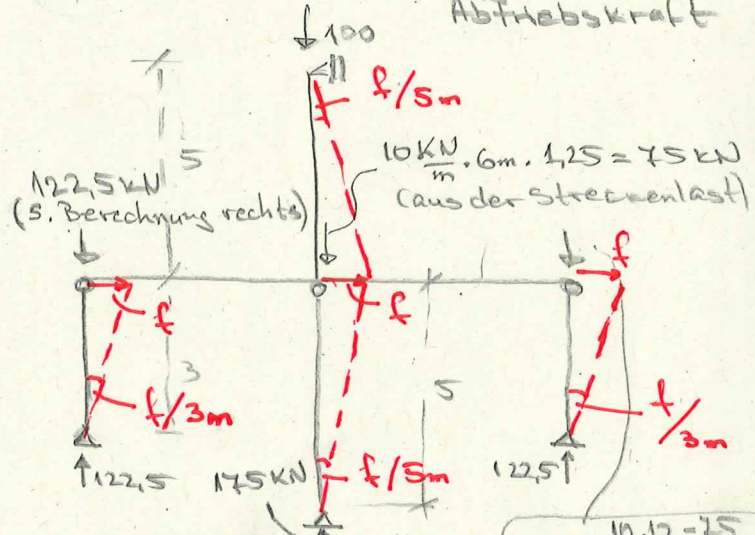 Abtriebskraft
100
f/5m
5
10 KN/m · 6m · 1,25 = 75 KN
(aus der Streckenlast)
122,5 KN
(s. Berechnung rechts)
f
f
f
3
5
f/3m
f/3m
f/5m
122,5
175 KN
122,5
10·12-75